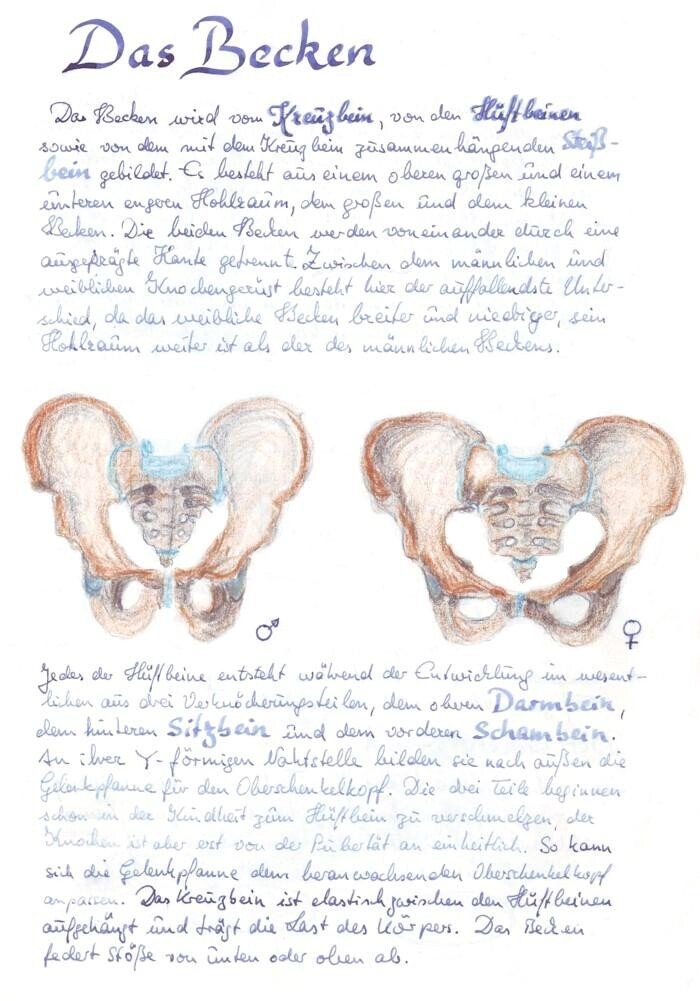 Das Becken
Das Becken wird vom Kreuzbein, von den Hüftbeinen
sowie von dem mit dem Kreuzbein zusammenhängenden Steiß-
bein gebildet. Es besteht aus einem oberen großen und einem
unteren engeren Hohlraum, dem großen und dem kleinen
Becken. Die beiden Becken werden voneinander durch eine
ausgeprägte Kante getrennt. Zwischen dem männlichen und
weiblichen Knochengerüst besteht hier der auffallendste Unter-
schied, da das weibliche Becken breiter und niedriger, sein
Hohlraum weiter ist als der des männlichen Beckens.
♂
♀
Jedes der Hüftbeine entsteht während der Entwicklung im wesent-
lichen aus drei Verknöcherungsteilen, dem oberen Darmbein,
dem hinteren Sitzbein und dem vorderen Schambein.
An ihrer Y-förmigen Nahtstelle bilden sie nach außen die
Gelenkpfanne für den Oberschenkelkopf. Die drei Teile beginnen
schon in der Kindheit zum Hüftbein zu verschmelzen, der
Knochen ist aber erst von der Pubertät an einheitlich. So kann
sich die Gelenkpfanne dem heranwachsenden Oberschenkelkopf
anpassen. Das Kreuzbein ist elastisch zwischen den Hüftbeinen
aufgehängt und trägt die Last des Körpers. Das Becken
federt Stöße von unten oder oben ab.